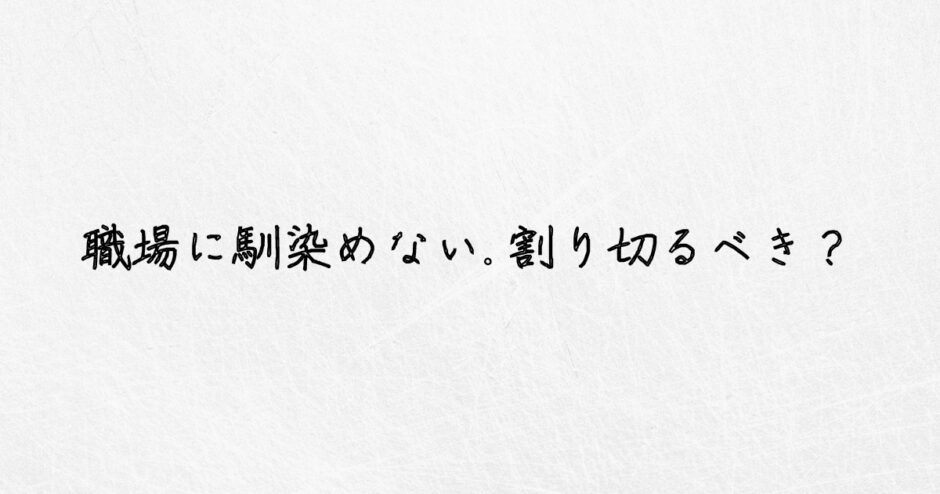 職場に馴染めない。割り切るべき？